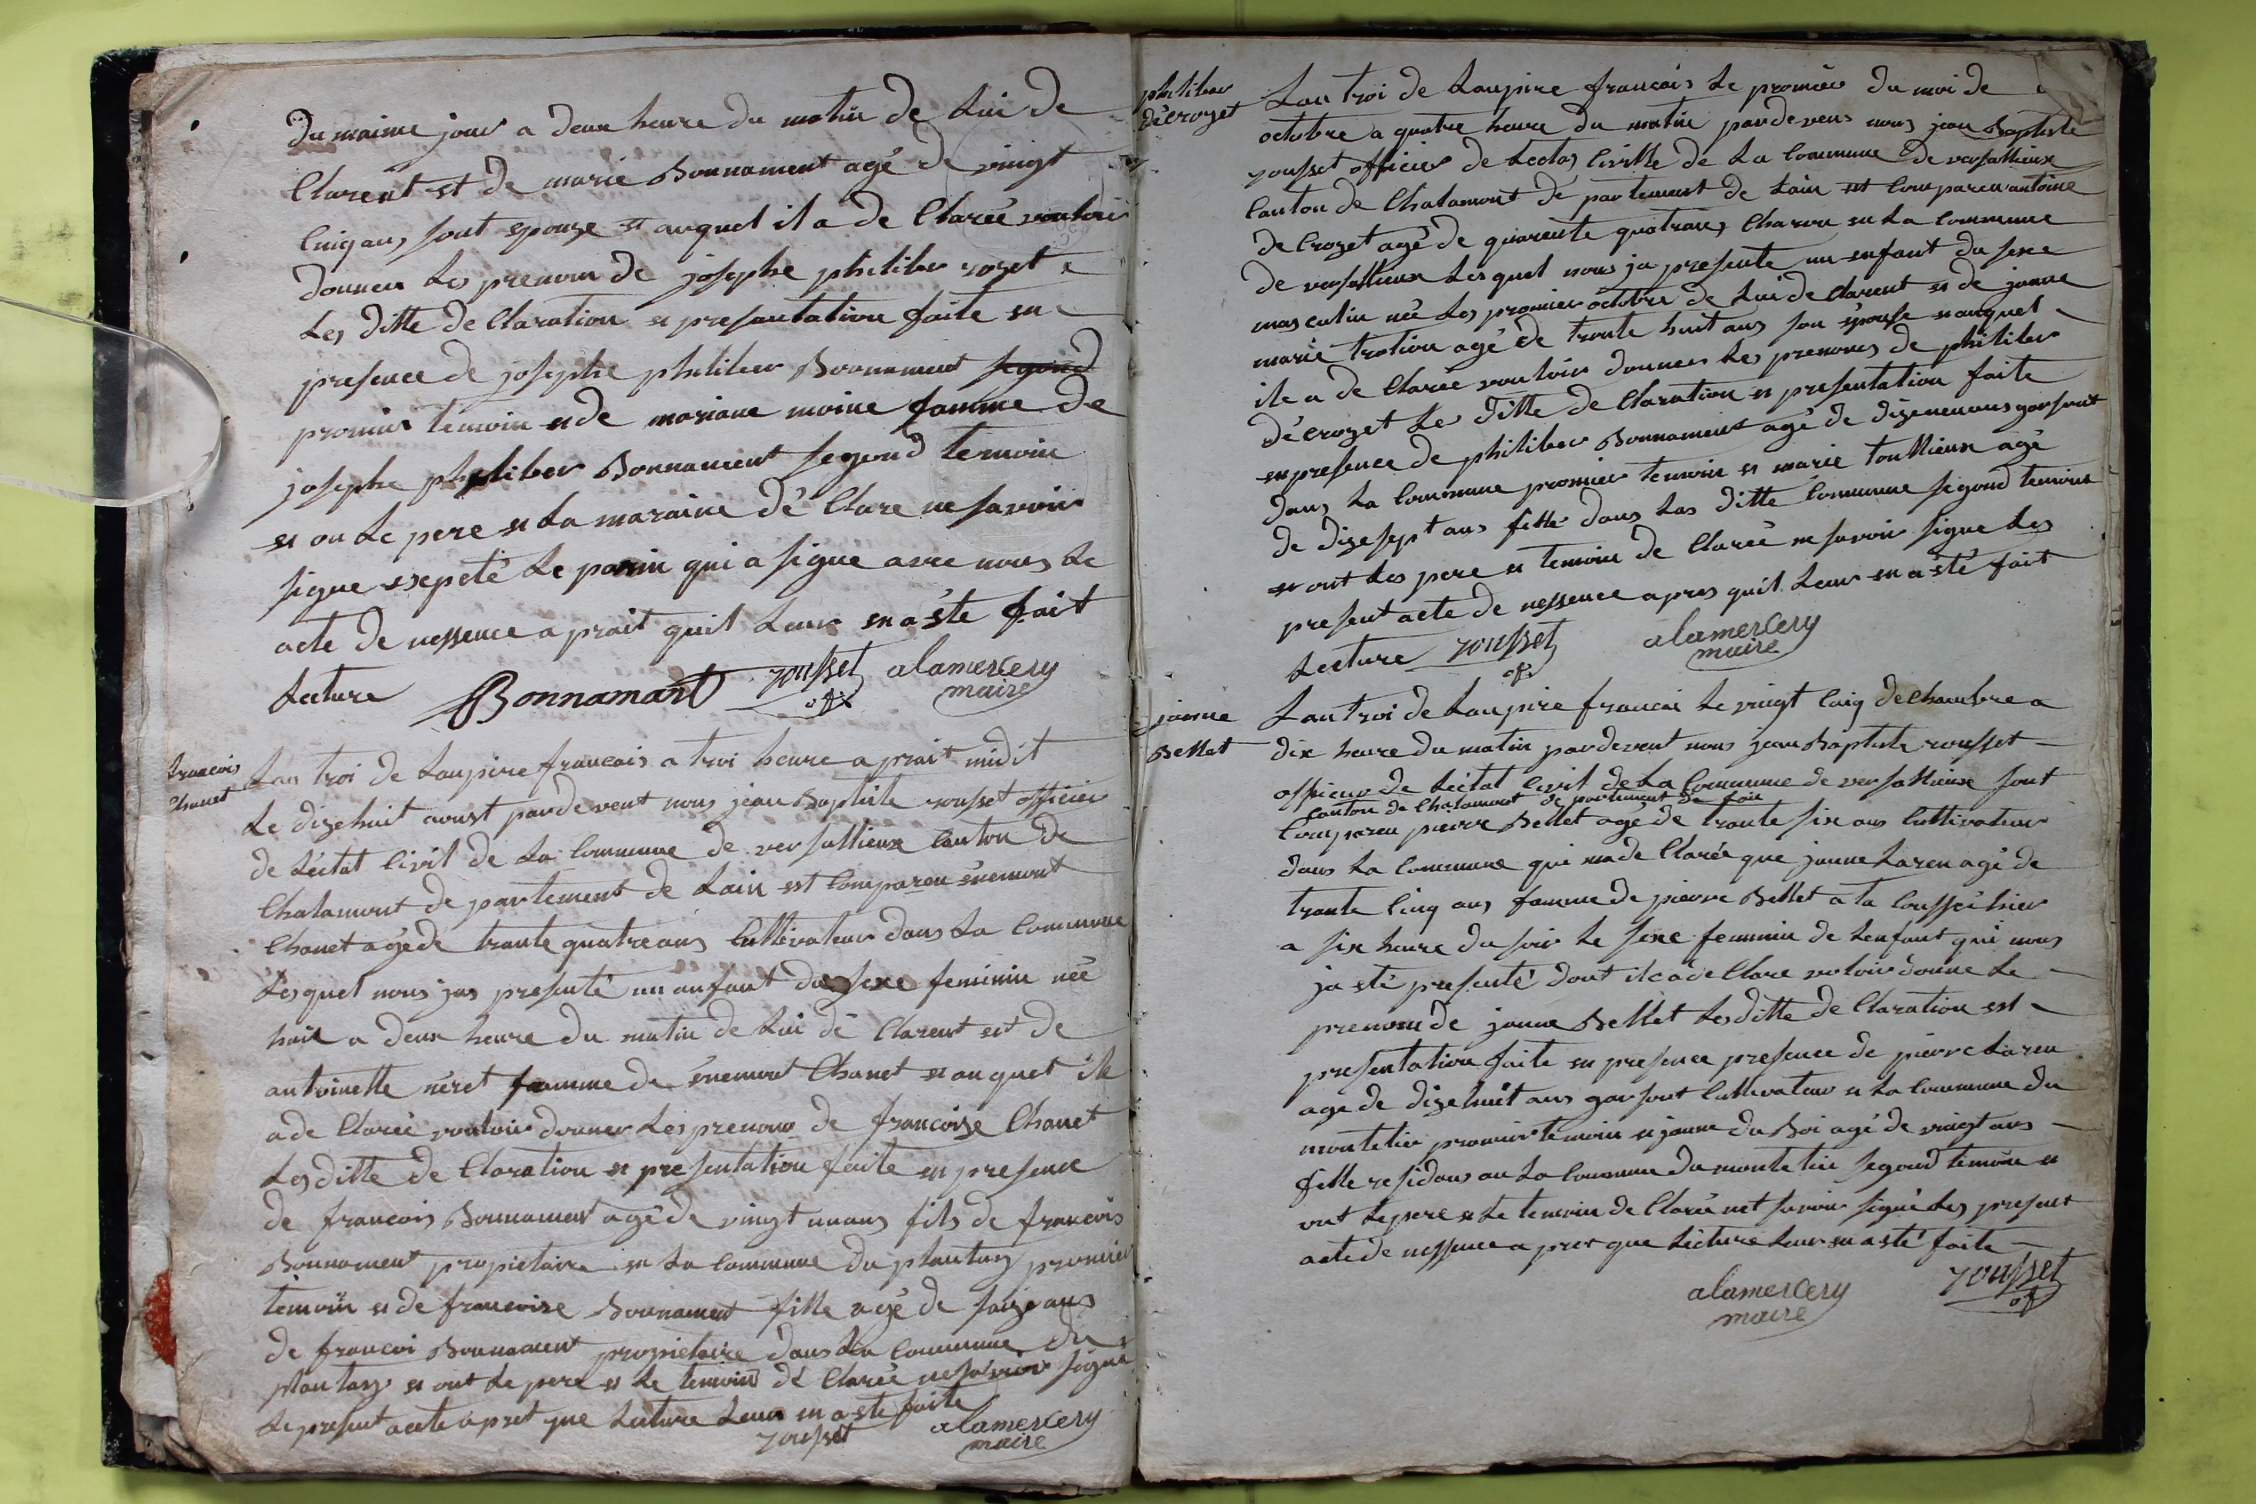 du maime jour a deux heure du matin de lui de
Clarent et de marie Bonnament agé de vingt
cinq ans sont epouze et auquel il a de Claréé vouloir
donner les prenom de josephe philiber rozet
les ditte de Claration et presantation faite en
presence de josephe philiber Bonnament segond
promier temoin et de mariane moine famme de
josephe philiber Bonnament segond temoin
et on le pere et la maraine dé Clare ne savoir
signe exepeté le parin qui a signe avec nous le
acte de nessence a prait quil leur en a été fait
lecture Bonnamant rousset of alamercery
maire
francois
Chanet
Lan troi de lanpire francais a troi heure a prait midit
le dizehuit aoust pardevent nous jean Baptiste rousset officier
de léctat Civil de la Commune de versallieux Canton de
Chalamont de partement de lain est Compareu énemont
Chanet agéde trante quatre ans Culltivateur dans la Commune
lesquel nous jas presenté un anfant du sexe feminin née
hair a deux heure du matin de lui dé Clarent et de
antoinette néret famme de énemont Chanet et auquel ile
a de Claréé vouloir donner les prenom de francoise Chanet
les ditte de Claration et presentation faite en presence
de francois Bonnament agé de vingt un ans fils de francois
Bonnament propietaire en la Commune du plantay promier
temoin et de francoise Bonnament fille agé de saize ans
de francoi Bonnament propietaire dans la Commune du
plantay et ont le pere et le temoin dé Claréé ne savoir signé
le present acte a pret que lecture leur en a été faite
rousset alamercery
maire
philiber
décrozet
Lan troi de lanpire francais le promier du moi de
octobre a quatre heure du matin pardevens nous jean Baptiste
rousset officier de lectat Civille de la Commune de versallieux
Canton de Chalamont de partement de lain est Compareu antoine
de Crozet agé de quarente quatre ans Charon en la Commune
de versallieux lesquel nous ja presente un enfant du sexe
masculin née les promier octobre de lui de Clarent et de janne
marie tration agé de trante huit ans son épouse et auquel
ile a de Claréé vouloir donner les prenoms de philiber
décrozet les ditte de Claration et presentation faite
en presence de philiber Bonnament agé de dizeneu ans garsont
dans la Commune promier temoin et marie toullieux agé
de dizesept ans fille dans las ditte Commune segond temoin
et ont les pere et temoin de Claréé ne savoir signe les
present acte de nessence apres quil leur en a été fait
lecture rousset of alamercery
maire
janne
Bellet
Lan troi de lanpire francai le vingt Cinq dechambre a
dix heure du matin pardevent nous jean Baptiste rousset
officier de léctat Civil de la Commune de versallieux sont
Canton de Chalamont de partement de lain
Compareu pierre Bellet agé de trante six ans Culltivateur
dans la Commune qui ma de Claréé que janne laren agé de
trante Cinq ans famme de pierre Bellet a la Cousséé hier
a six heure du soir le sexe feminin de lenfant qui nous
ja été presenté dont ile a de Clare voloir donné le
prenom de janne Bellet les ditte de Claration est
presentation faite en presence presence de pierre laren
agé de dizehuit ans garsont Culltivateur en la Commune du
montelier promier temoin et janne du Boi agé de vingt ans
fille residans au la Commune du montelier segond temoin et
ont le pere et le temoin de Claré net savoir signé les present
acte de nessence a pret que lecture leur en a été faite
alamercery rousset
maire of